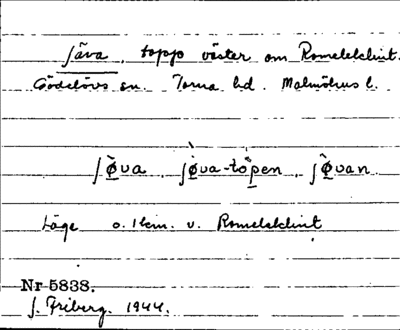 ʃäva, topp väster om Romeleklint.
Gödelövs sn. Torna hd. Malmöhus l.
ʃøva, ʃøva-töpen, ʃøvan
Läge o. 1 km. v. Romeleklint
Nr 5838.
J. Friberg. 1944.